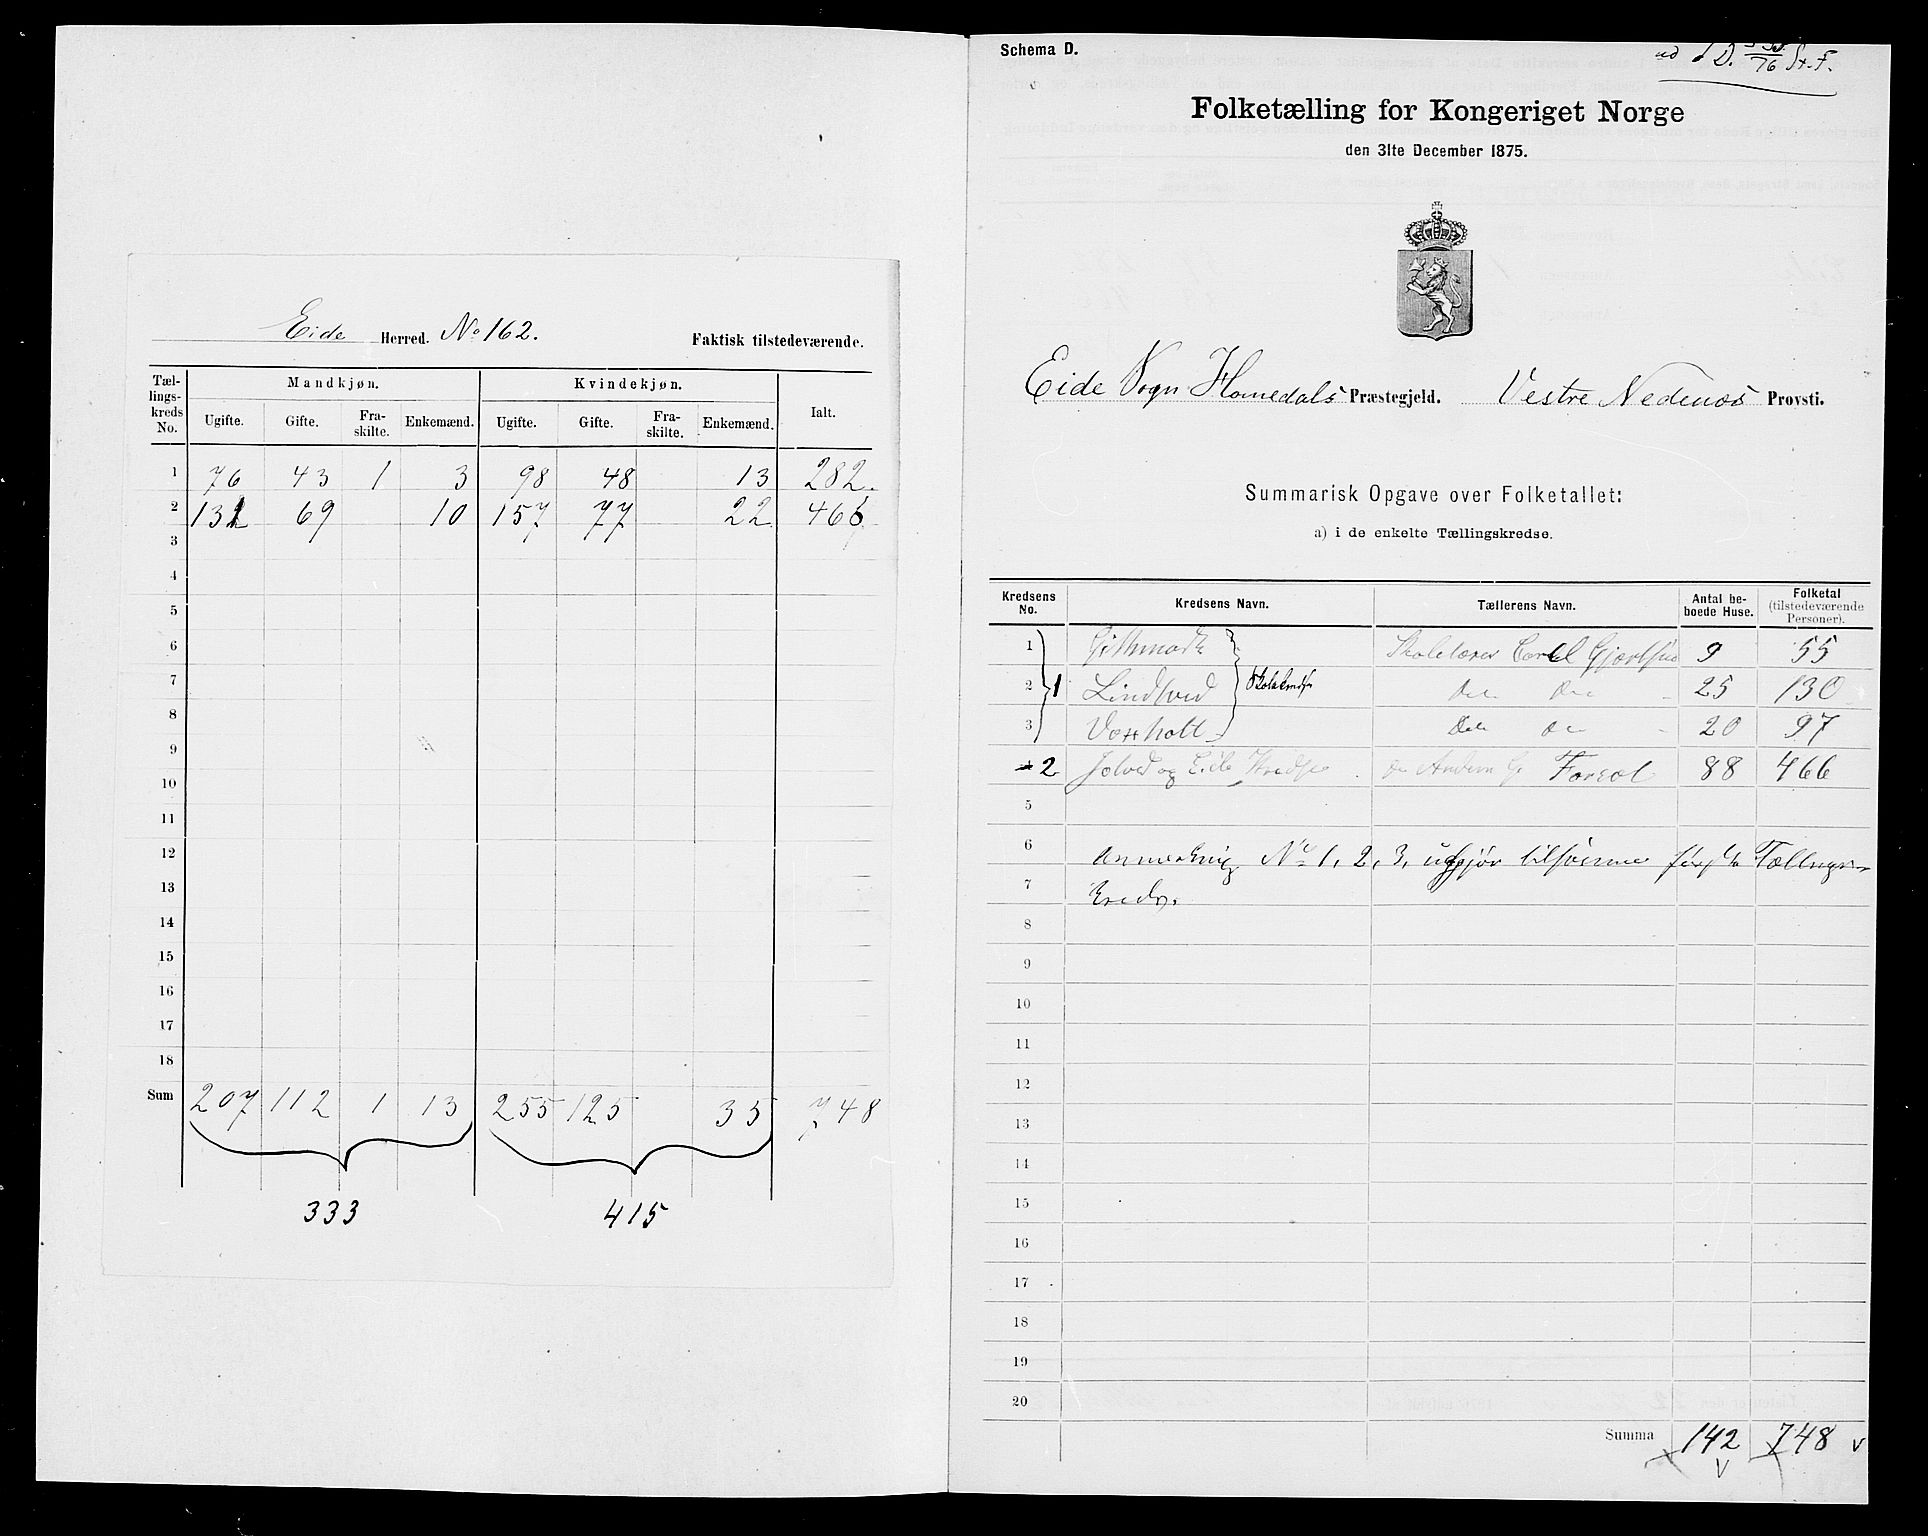 Eide Herred. No 162. Faktisk tilstedeværende.
Tællingskreds No. Mandkjøn. Kvindekjøn. Ialt.
Ugifte. Gifte. Fraskilte. Enkemænd. Ugifte. Gifte. Fraskilte. Enkemænd.
1 76 43 1 3 98 48 13 282.
2 131 69 10 157 77 22 466
3
4
5
6
7
8
9
10
11
12
13
14
15
16
17
18
Sum 207 112 1 13 255 125 35 748
333 415
Schema D.
D. 76 St. F.
Folketælling for Kongeriget Norge
den 31te December 1875.
Eide Sogn Homedals Præstegjeld. Vestre Nedenæs Provsti.
Summarisk Opgave over Folketallet:
a) i de enkelte Tællingskredse.
Kredsens No. Kredsens Navn. Tællerens Navn. Antal beboede Huse. Folketal (tilstedeværende Personer).
1 Skolelærer Carl 9 55
2 1 Lindtved 25 130
3 Voxholt 20 97
2 og Eide Kredse 88 466
5
6 Anmærkning No 1, 2, 3, udgjør tilsammen første Tællings-
7 kreds.
8
9
10
11
12
13
14
15
16
17
18
19
20
Summa 142 748